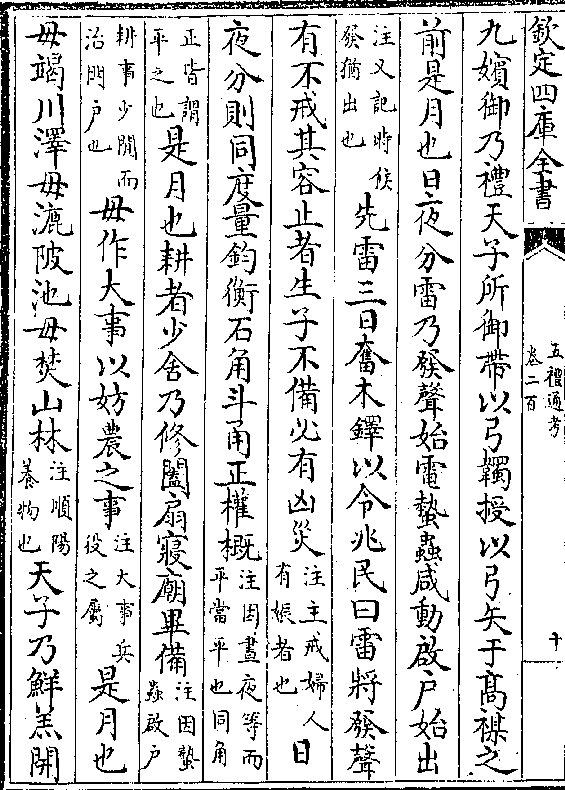 欽定四庫全書
五禮通考
卷二百
十
九嬪御乃禮天子所御帶以弓韣授以弓矢于髙禖之
前是月也日夜分雷乃發聲始電蟄蟲咸動啟户始出
注又記時候
發猶出也
先雷三日奮木鐸以令兆民曰雷將發聲
有不戒其容止者生子不備必有凶災
注主戒婦人
有娠者也
日
夜分則同度量鈞衡石角斗甬正權概
注因晝夜等而
平當平也同角
正皆謂
平之也
是月也耕者少舍乃修闔扇寢廟畢備
注因蟄
蟲啟户
耕事少閒而
治門户也
毋作大事以妨農之事
注大事兵
役之屬
是月也
毋竭川澤毋漉陂池毋焚山林
注順陽
養物也
天子乃鮮羔開